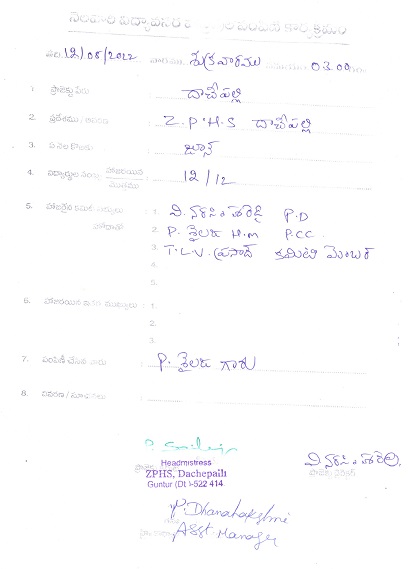 నెలవారీ విద్యావసర వస్తువుల పంపిణీ కార్యక్రమం
12/08/2022 వారము శుక్రవారము సమయం 03.00
1. ప్రాజెక్టు పేరు దాచేపల్లి
2. ప్రదేశము / Z.P.H.S దాచేపల్లి
3. ఏ నెల కొరకు జూన్
4. విద్యార్థుల సంఖ్య హాజరయిన / మొత్తము 12/12
5. హాజరైన కమిటి సభ్యులు 1. వి. నరసింహారెడ్డి P.D
2. P. శైలజ H.M P.CC
3. T.L.V. ప్రసాద్ కమిటి మెంబర్
4.
5.
6. హాజరయిన ఇతర ముఖ్యులు : 1.
2.
3.
7. పంపిణీ చేసిన వారు P. శైలజ గారు
8. వివరణ / సూచనలు
Headmistress
ZPHS, Dachepalli
Guntur (Dt)-522 414.
వి. నరసింహారెడ్డి
P. Dhanalakshmi
Asst. Manager